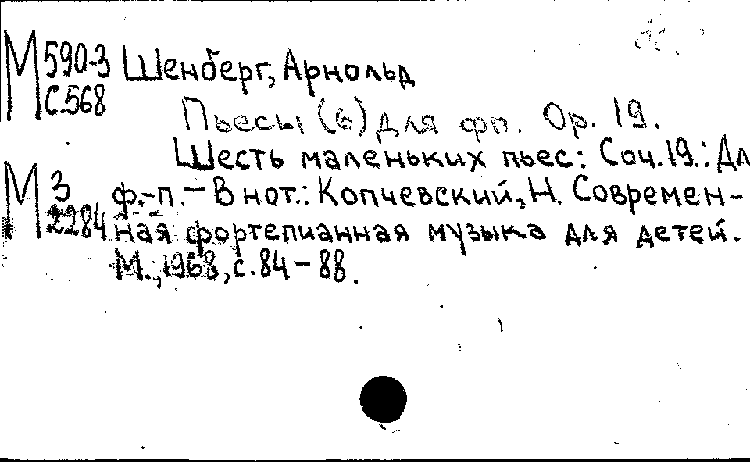 М 590-3 Шенберг, Арнольд
С.568
Пьесы (6) для фп. Op. 19.
Шесть маленьких пьес: Соч.19.: Дл
М 3 ф.-п. – В нот.: Копчевский, Н. Современ-
2284 ная фортепианная музыка для детей.
М., 1968, с. 84 – 88.